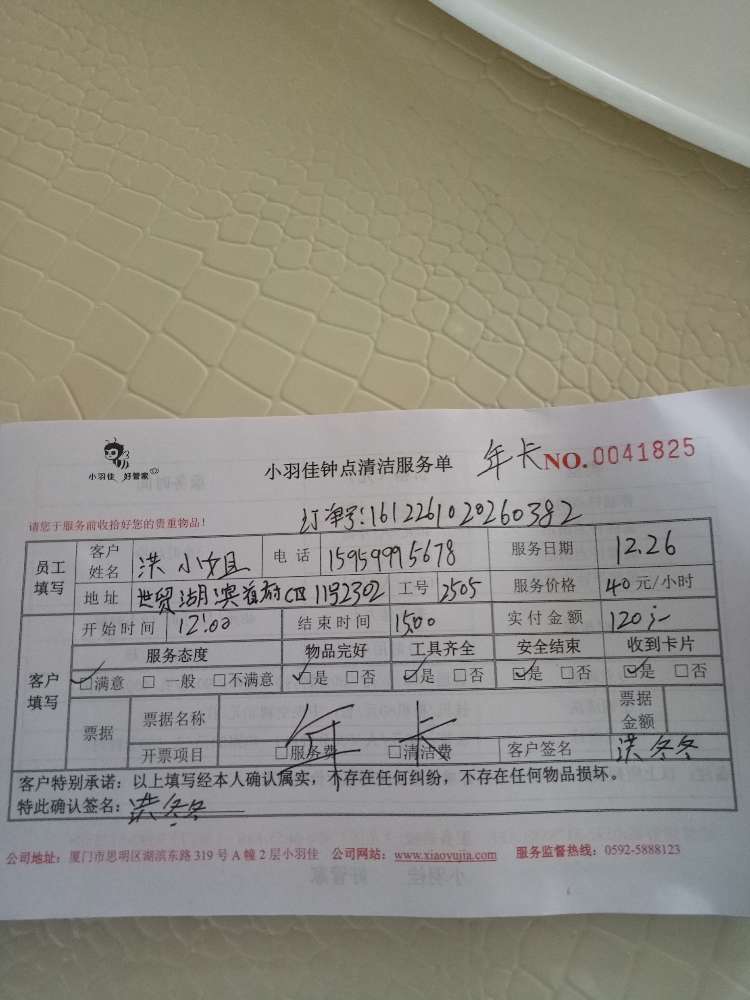 小羽佳 好管家
小羽佳钟点清洁服务单 年卡 NO. 0041825
请您于服务前收拾好您的贵重物品!
订单号:1612261020260382
员工填写 客户姓名 洪小姐 电话 15959995678 服务日期 12.26
地址 世贸湖滨首府 1号2302 工号 2505 服务价格 40元/小时
客户填写 开始时间 12:00 结束时间 1500 实付金额 120元
服务态度 物品完好 工具齐全 安全结束 收到卡片
☑满意 □一般 □不满意 ☑是 □否 ☑是 □否 ☑是 □否 ☑是 □否
票据 票据名称 年卡 票据金额
开票项目 □服务费 □清洁费 客户签名 洪冬冬
客户特别承诺:以上填写经本人确认属实,不存在任何纠纷,不存在任何物品损坏。
特此确认签名:洪冬冬
公司地址:厦门市思明区湖滨东路319号A幢2层小羽佳 公司网站:www.xiaoyujia.com 服务监督热线:0592-5888123